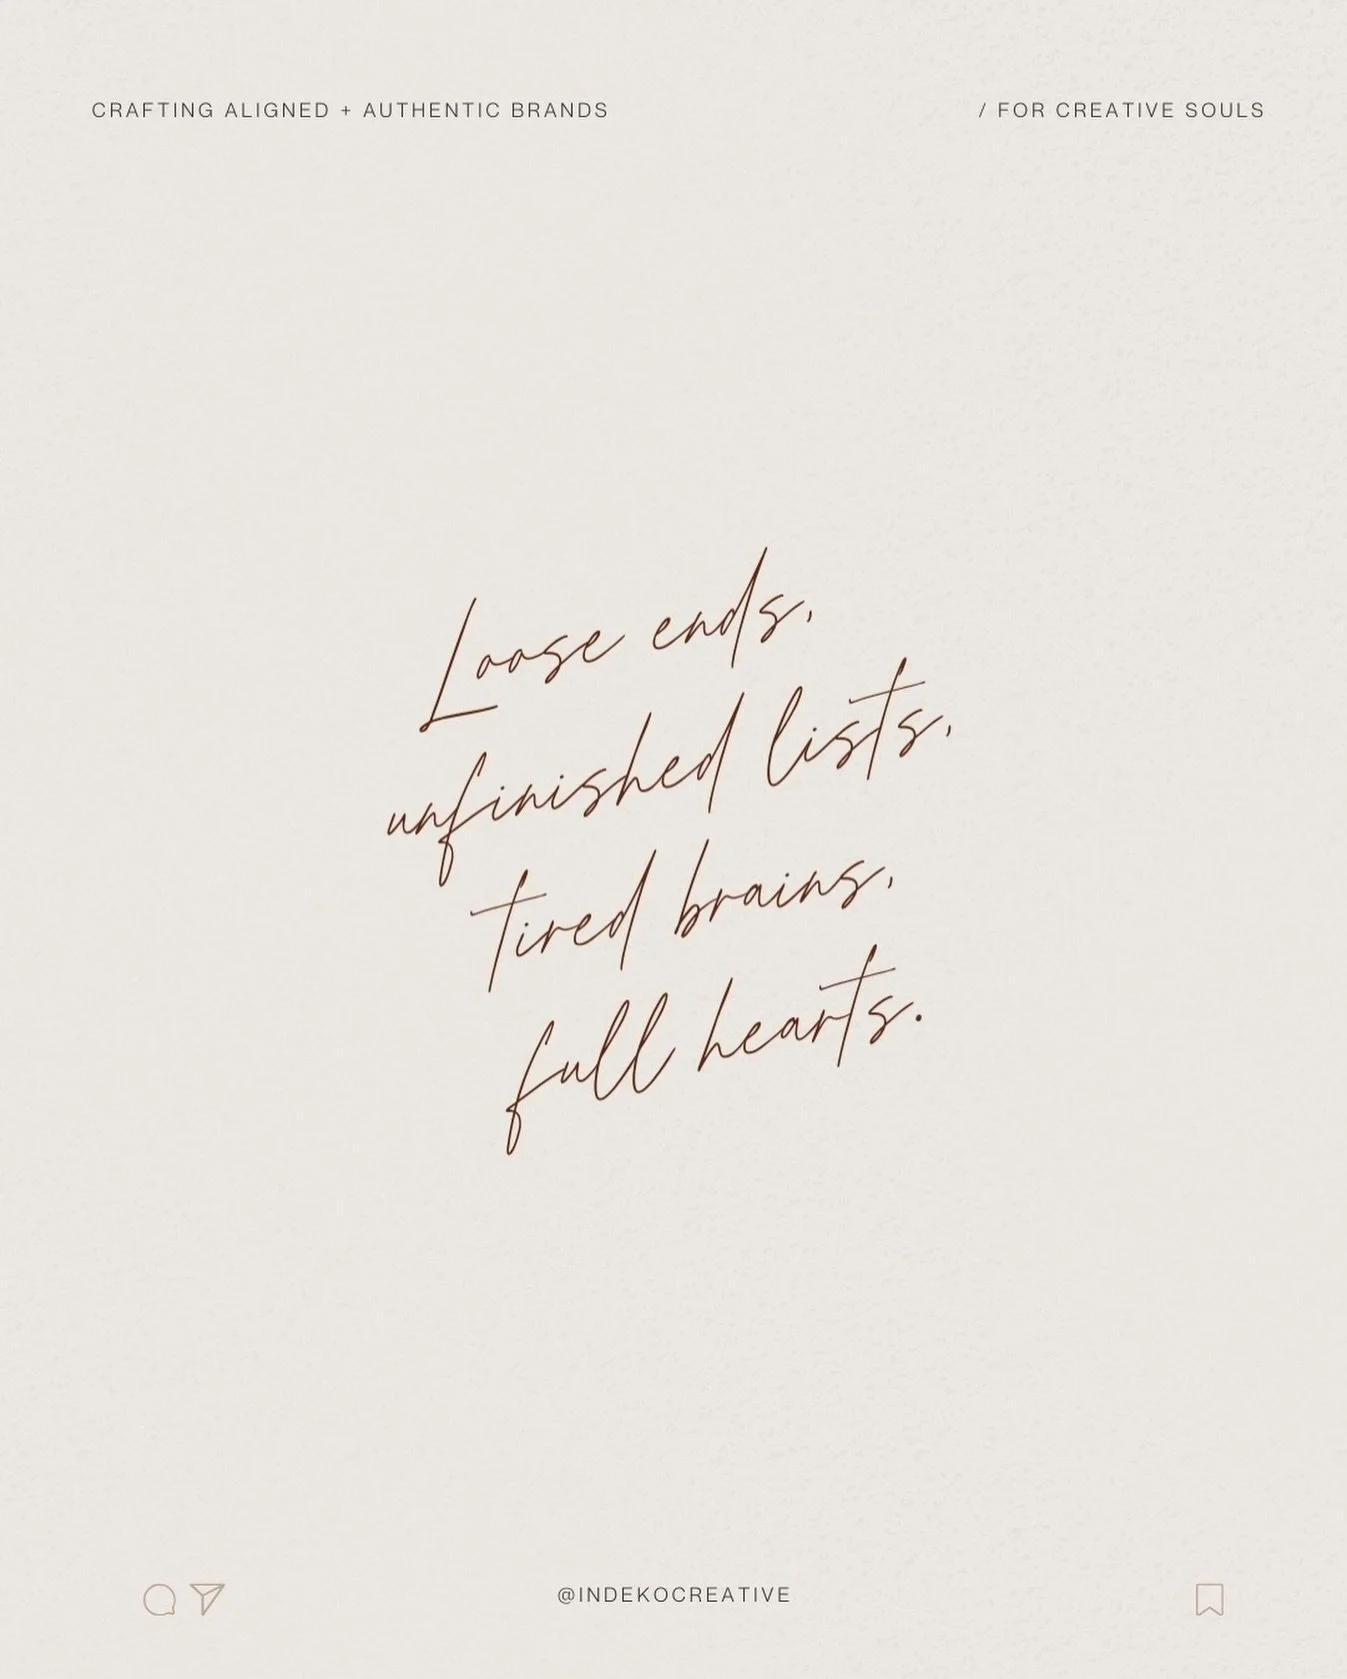 CRAFTING ALIGNED + AUTHENTIC BRANDS
/ FOR CREATIVE SOULS
Loose ends,
unfinished lists,
tired brains,
full hearts.
@INDEKOCREATIVE